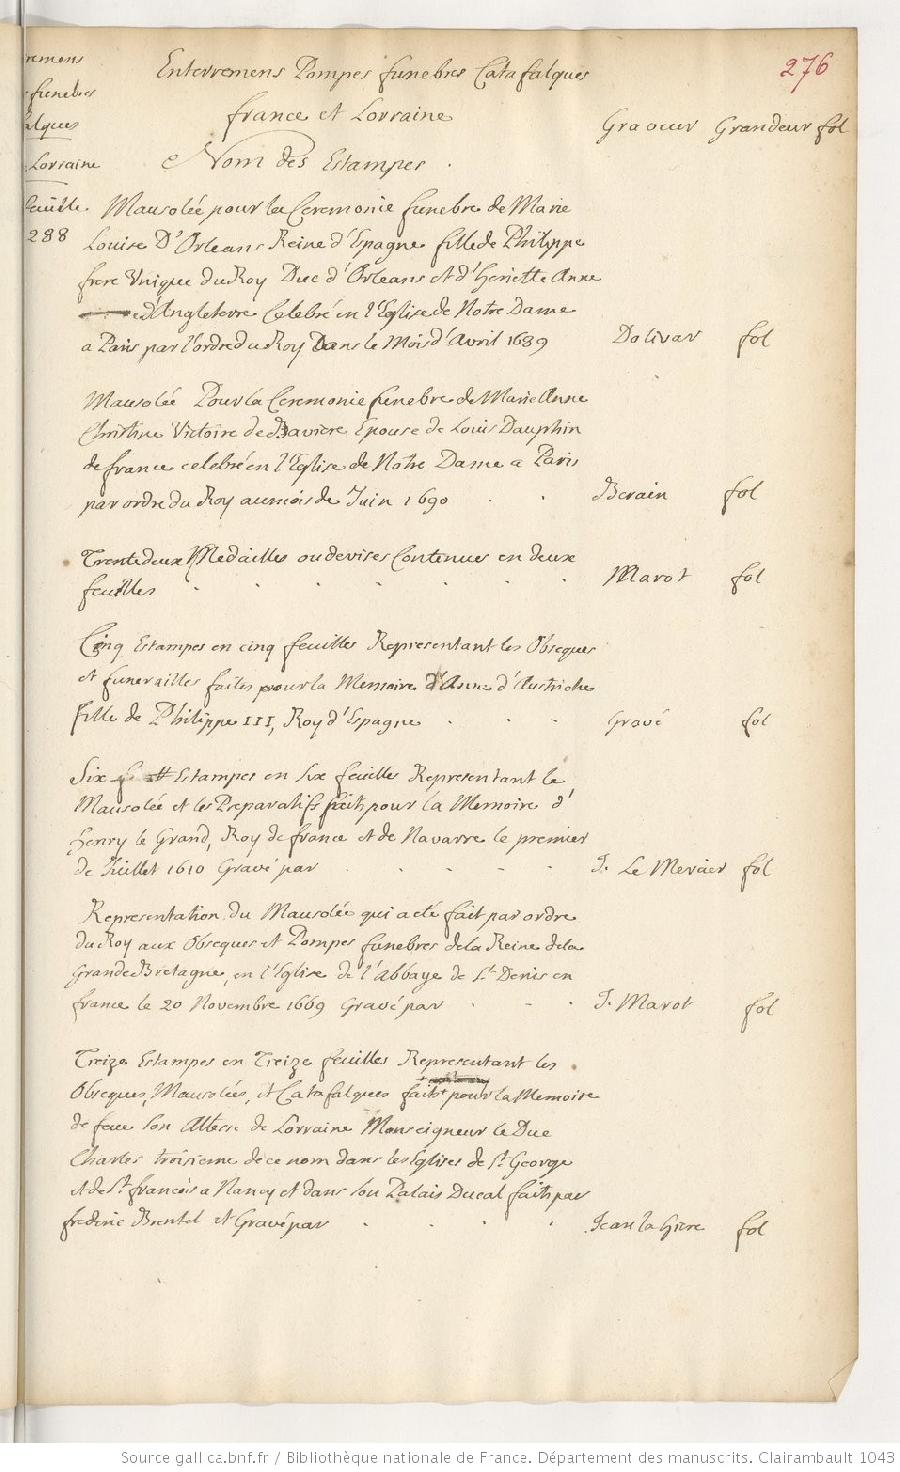 276
Enterremens Pompes funebres Catafalques
france et Lorraine
Graveur Grandeur fol
Nom des Estampes .
remens
funebres
alques
Lorraine
feüille
288
Mausolée pour la Ceremonie funebre de Marie
Louise D'Orleans Reine d'Espagne fille de Philippe
frere Unique du Roy Duc d'Orleans et d'Henriette Anne
d'Angleterre Celebré en l'Eglise de Notre Dame
a Paris par l'ordre du Roy Dans le Mois d'Avril 1689 Dolivar fol
Mausolée Pour la Ceremonie funebre de Marie Anne
Christine Victoire de Baviere Epouse de Louis Dauphin
de france celebré en l'Eglise de Notre Dame a Paris
par ordre du Roy au mois de Juin 1690 Berain fol
Trente deux Medailles ou devises Contenues en deux
feuilles Marot fol
Cinq Estampes en cinq feuilles Representant les Obseques
et funerailles faites pour la Memoire d'Anne d'Austriche
fille de Philippe III, Roy d'Espagne Gravé fol
Six Estampes en six feuilles Representant le
Mausolée et les Preparatifs faits pour la Memoire d'
Henry le Grand, Roy de france et de Navarre le premier
de Juillet 1610 Gravé par J. Le Mercier fol
Representation du Mausolée qui a eté fait par ordre
du Roy aux Obseques et Pompes funebres de la Reine de la
Grande Bretagne, en l'Eglise de l'Abbaye de St Denis en
france le 20 Novembre 1669 Gravé par J. Marot fol
Treize Estampes en Treize feuilles Representant les
Obseques, Mausolées, et Catafalques faits pour la Memoire
de feue Son Altesse de Lorraine Monseigneur le Duc
Charles troisieme de ce nom dans les Eglises de St George
et de St francois a Nancy et dans son Palais Ducal fait par
frederic Brentel et Gravé par Jean la Hiere fol
Source gallica.bnf.fr / Bibliothèque nationale de France. Département des manuscrits. Clairambault 1043